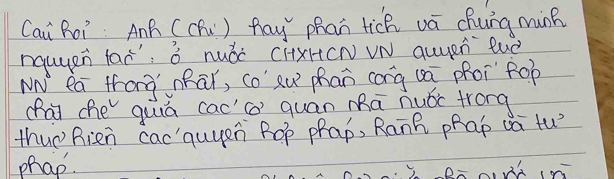 Câu hỏi: Anh (chị) hãy phân tích và chứng minh
nguyên tắc: ở nước CHXHCN VN quyền lực
NN là thống nhất, có sự phân công và phối hợp
chặt chẽ giữa các cơ quan nhà nước trong
thực hiện các quyền lập pháp, hành pháp và tư
pháp.